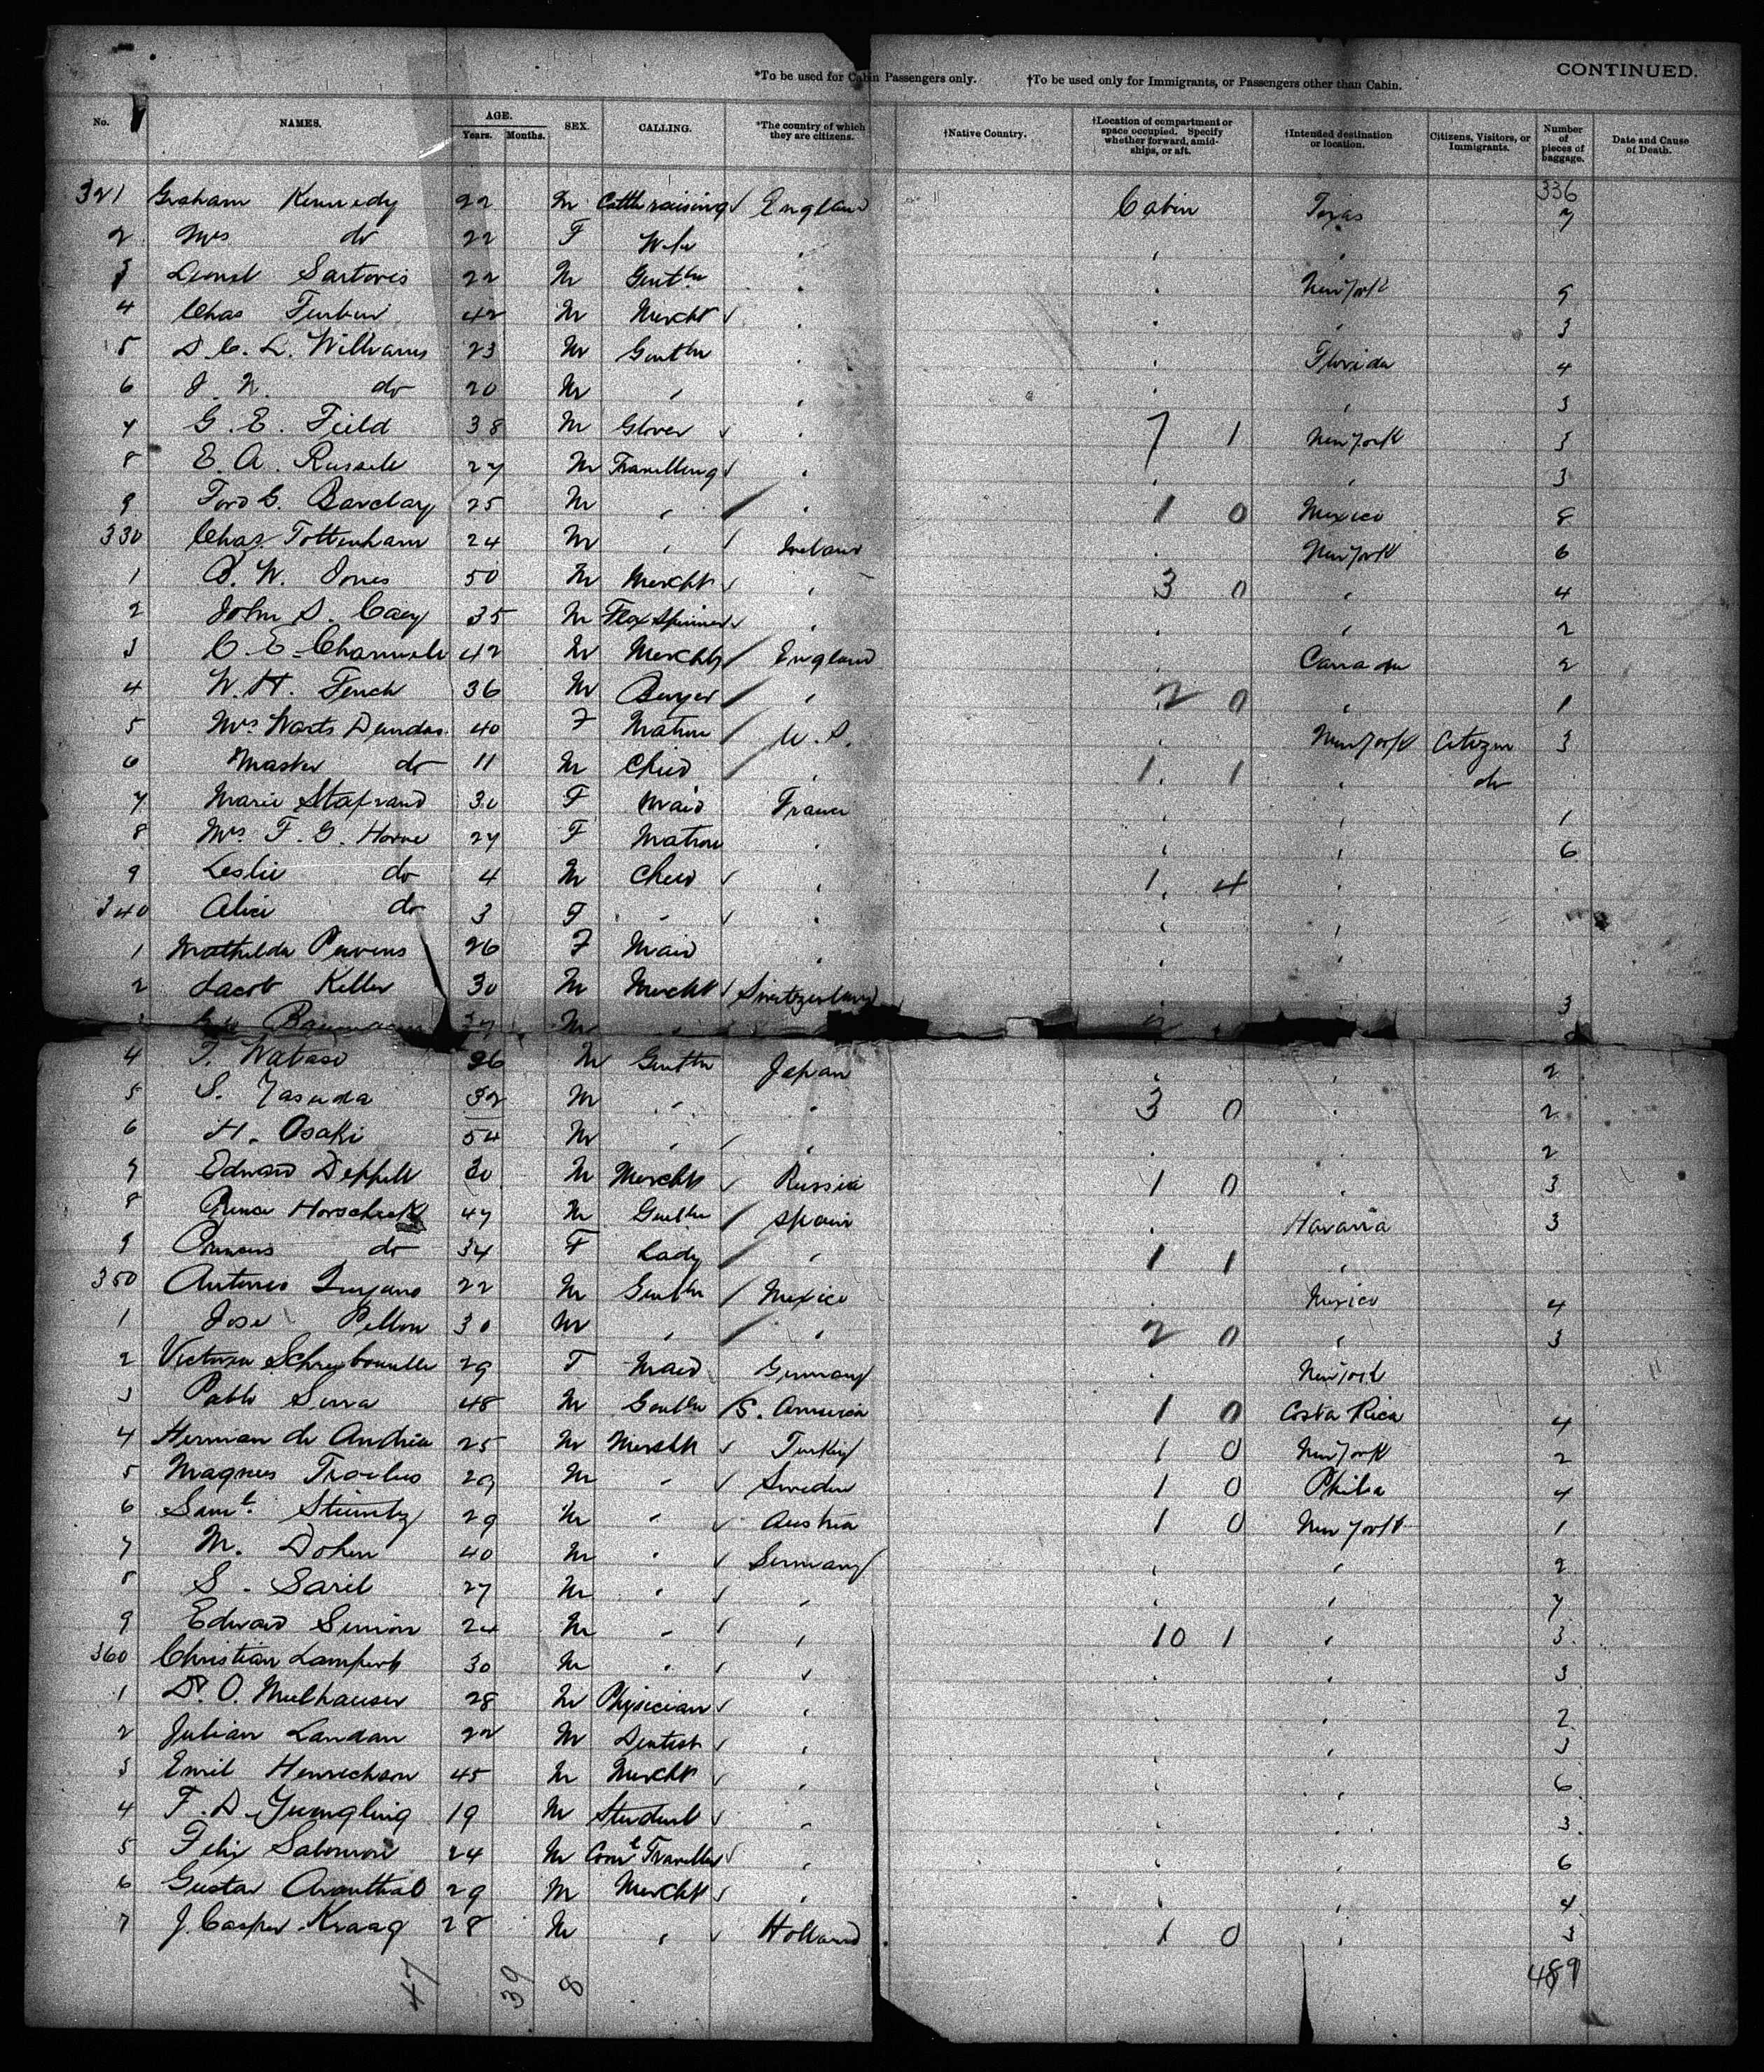 *To be used for Cabin Passengers only. †To be used only for Immigrants, or Passengers other than Cabin. CONTINUED.
No. NAMES. AGE. Years. Months. SEX. CALLING. *The country of which they are citizens. †Native Country. †Location of compartment or space occupied. Specify whether forward, amidships, or aft. †Intended destination or location. Citizens, Visitors, or Immigrants. Number of pieces of baggage. Date and Cause of Death.
336
321 Graham Kennedy 22 M Cattle raising England Cabin Texas 7
2 Mrs do 22 F Wife
3 Lionel Sartoris 22 M Gentln New York 9
4 Chas 42 M Mercht 3
5 D. C. L. Williams 23 M Gentln Florida 4
6 J. N. do 20 M 3
7 G. E. Field 38 M Glover 7 1 New York 3
8 E. A. Russele 27 M Travelling 3
9 Ford G. Barclay 25 M 1 0 Mexico 8
330 Chas. Tottenham 24 M Ireland New York 6
1 W. Jones 50 M Mercht 3 0 4
2 John S. 35 M Flax Spinner 2
3 C. E. 42 M Mercht England Canada 2
4 W. H. 36 M Buyer 2 0 1
5 Mrs Dundas 40 F Matron U.S. New York Citizen 3
6 Master do 11 M Child 1 1 do
7 Marie 30 F Maid France 1
8 Mrs F. G. Horne 27 F Matron 6
9 Leslie do 4 M Child 1 4
340 Alice do 3 F
1 Mathilda 26 F Maid
2 Jacob Keller 30 M Mercht Switzerland 3
3 M
4 T. Watase 26 M Gentln Japan 2
5 S. Yasuda 32 M 3 0 2
6 H. Osaki 54 M 2
7 Edward Deppell 30 M Mercht Russia 1 0 3
8 Prince 47 M Gentln Spain Havana 3
9 Princess do 34 F Lady 1 1
350 Antonio 22 M Gentln Mexico Mexico 4
1 Jose Pellon 30 M 2 0 3
2 Victoria 29 F Maid Germany New York
3 Pablo Serra 48 M Gentln S. America 1 0 Costa Rica 4
4 Herman de Andria 25 M Mercht Turkey 1 0 New York 2
5 Magnus 29 M Sweden 1 0 Phila 4
6 Saml. 29 M Austria 1 0 New York 1
7 M. Dohen 40 M Germany 2
8 S. Saril 27 M 7
9 Edward Simon 24 M 10 1 3
360 Christian Lampert 30 M 3
1 Dr. O. Mulhauser 28 M Physician 2
2 Julian Landau 22 M Dentist 3
3 Emil Henrichson 45 M Mercht 6
4 F. D. Yuengling 19 M Student 3
5 Felix Salomon 24 M Coml Traveller 6
6 Gustav 29 M Mercht 4
7 J. Casper Kraag 28 M Holland 1 0 3
47 39 8 489